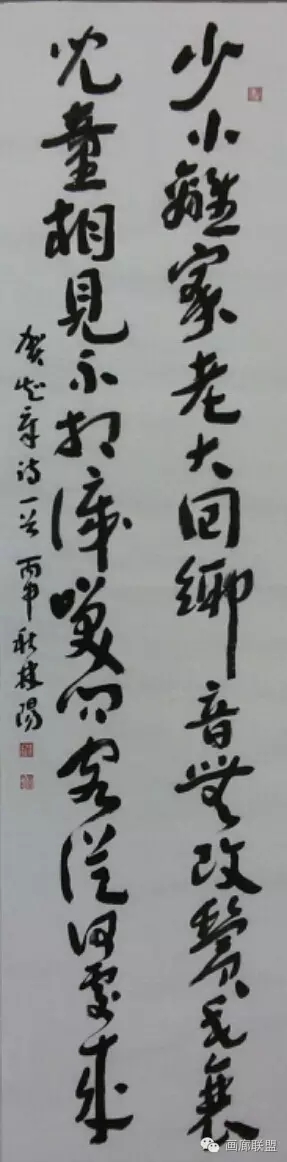 少小離家老大回鄉音無改鬢毛衰
兒童相見不相識咲問客從何處來
賀知章詩一首 丙申秋
画廊联盟